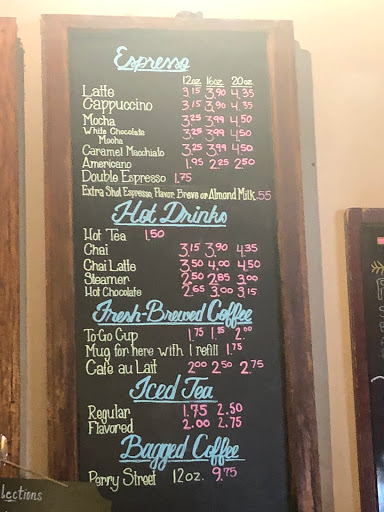 Espresso
12oz 16oz 20oz
Latte 3.15 3.90 4.35
Cappuccino 3.15 3.90 4.35
Mocha 3.25 3.99 4.50
White Chocolate
Mocha 3.25 3.99 4.50
Caramel Macchiato 3.25 3.99 4.50
Americano 1.95 2.25 2.50
Double Espresso 1.75
Extra Shot Espresso, Flavor, Breve or Almond Milk .55
Hot Drinks
Hot Tea 1.50
Chai 3.15 3.90 4.35
Chai Latte 3.50 4.00 4.50
Steamer 2.50 2.85 3.00
Hot Chocolate 2.65 3.00 3.15
Fresh-Brewed Coffee
To-Go Cup 1.75 1.85 2.00
Mug for here with 1 refill 1.75
Cafe au Lait 2.00 2.50 2.75
Iced Tea
Regular 1.75 2.50
Flavored 2.00 2.75
Bagged Coffee
Perry Street 12oz. 9.75